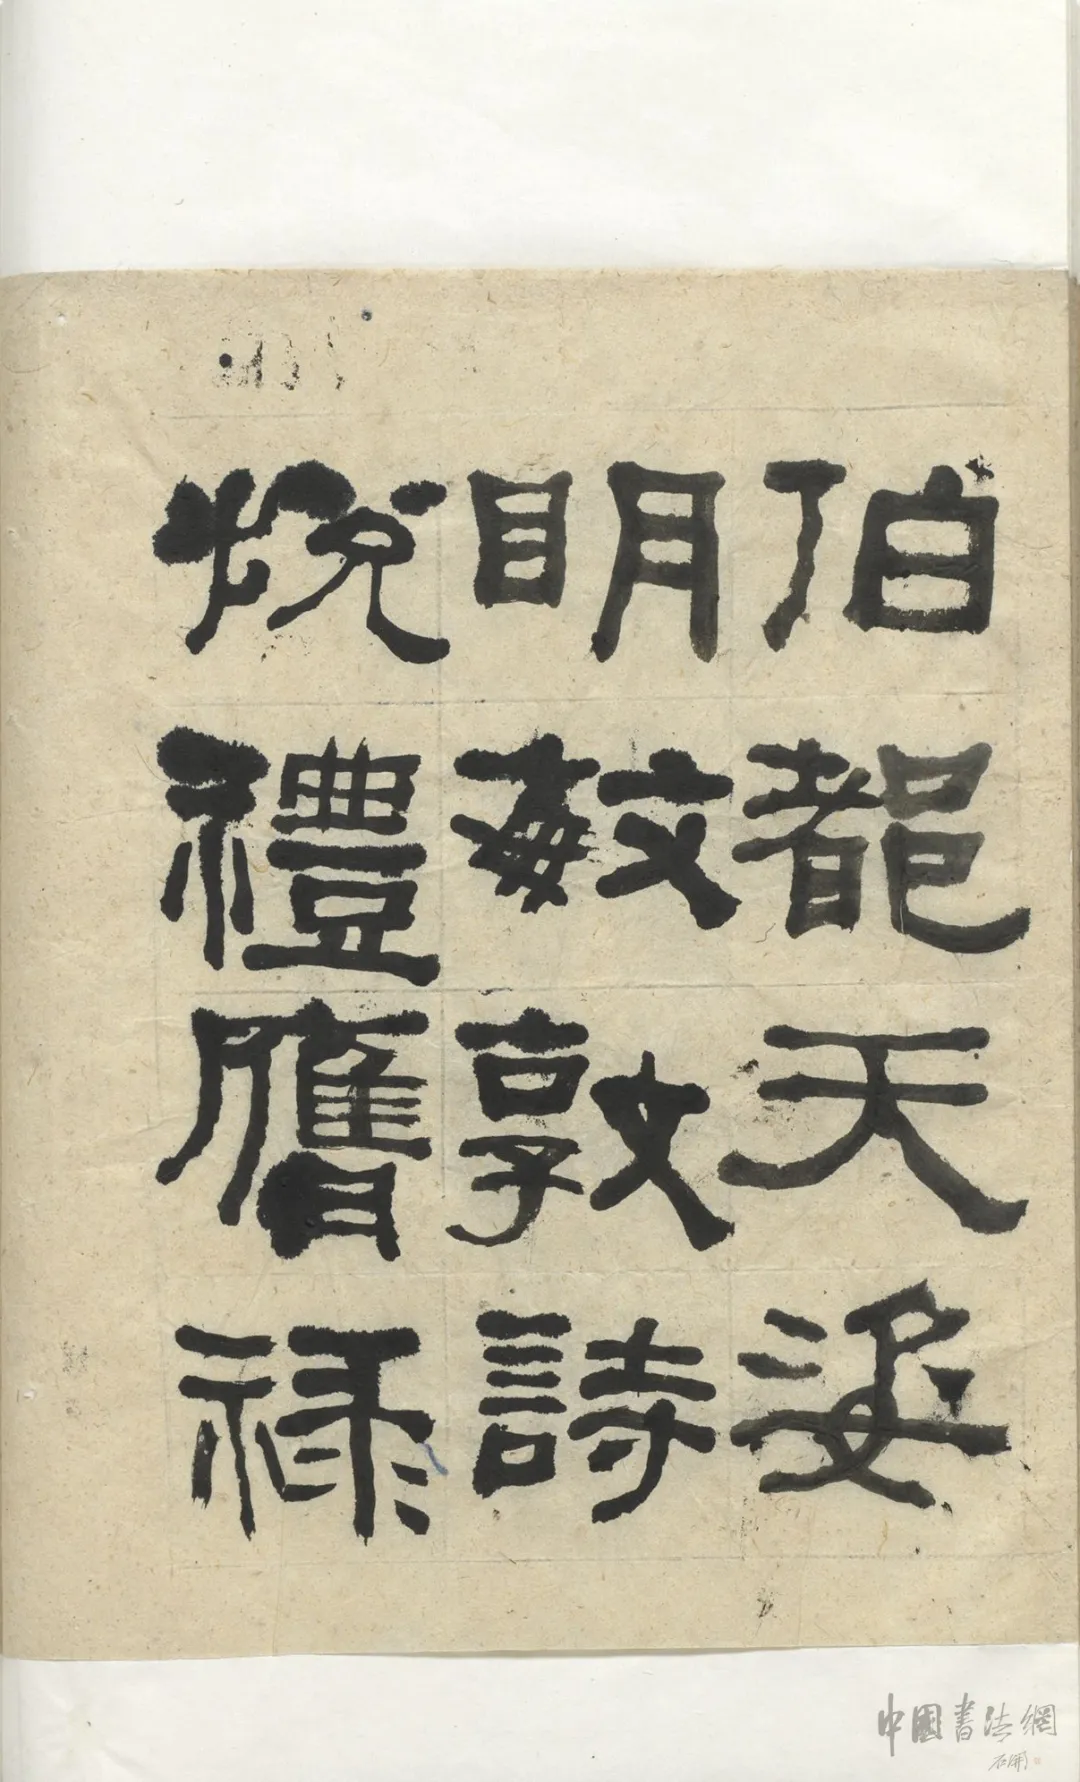 伯都天姿
明敏敦詩
悅禮膺祿
中國書法網
石開